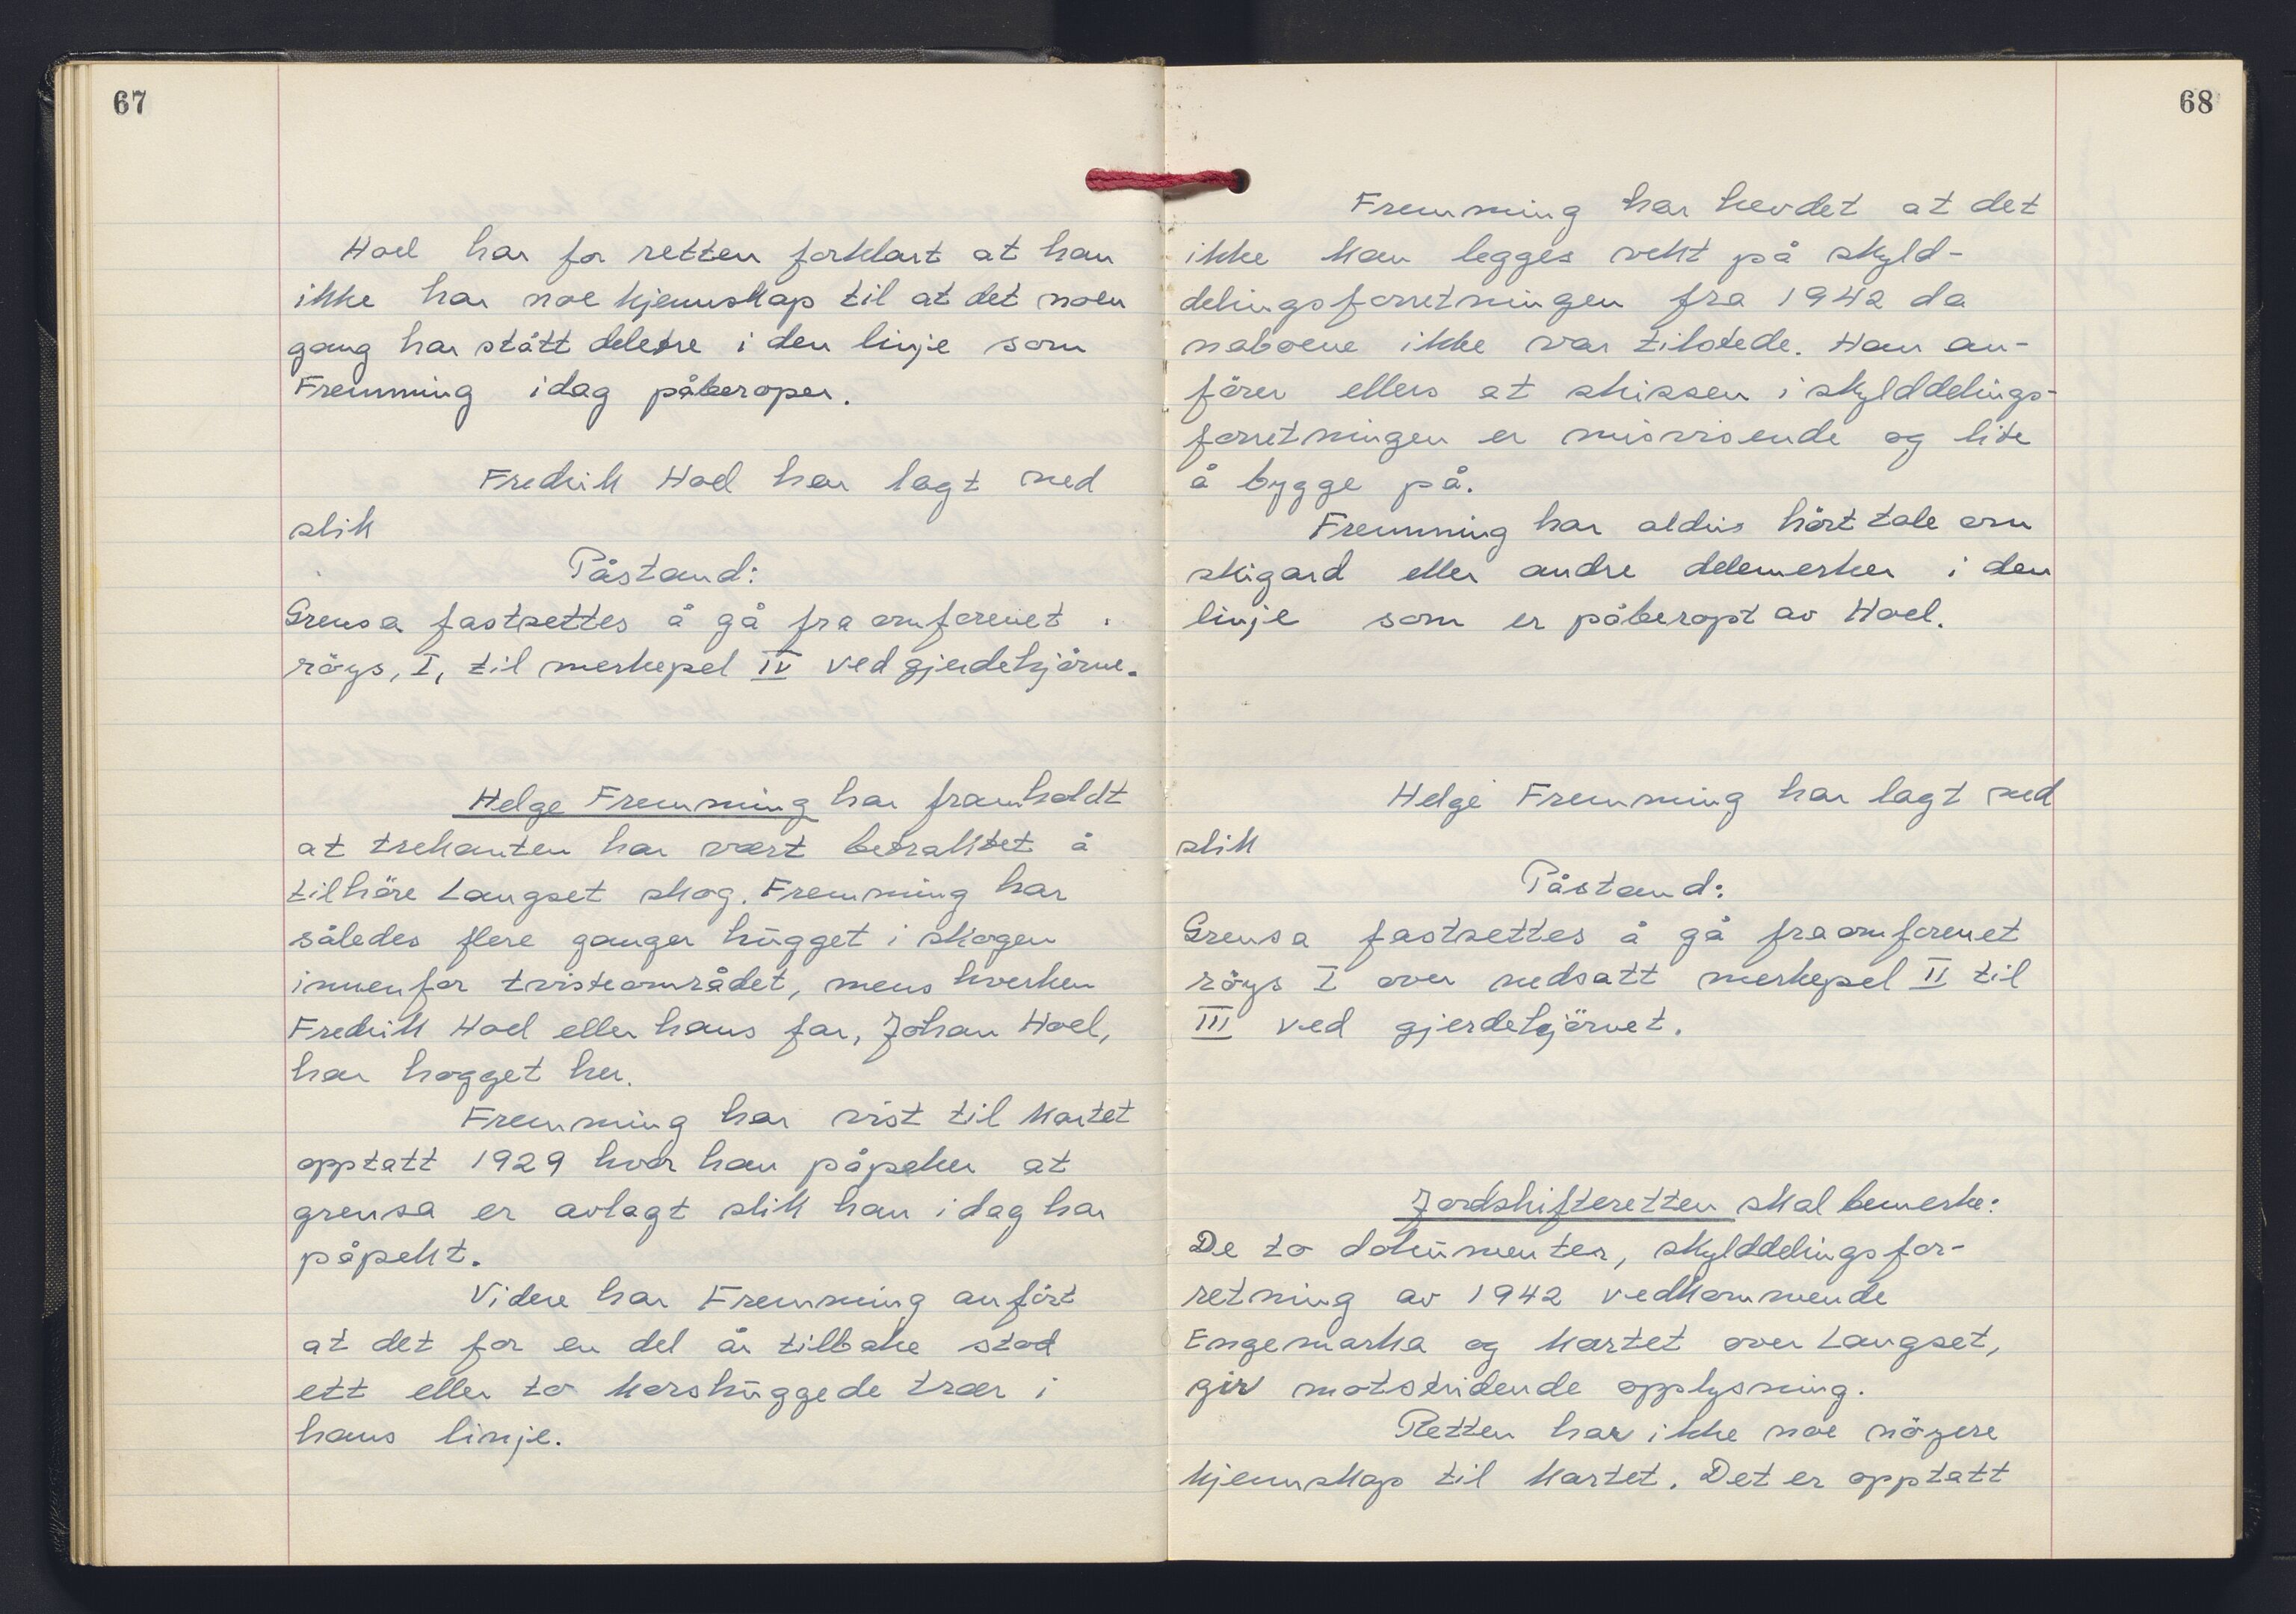 67
Hoel har for retten forklart at han
ikke har noe kjennskap til at det noen
gang har stått deletre i den linje som
Fremming idag påberoper.
Fredrik Hoel har lagt ned
slik
Påstand:
Grensa fastsettes å gå fra omforenet
röys, I, til merkepel IV ved gjerdehjörne.
Helge Fremming har framholdt
at trekanten har vært betraktet å
tilhöre Langset skog. Fremming har
således flere ganger hugget i skogen
innenfor tvisteområdet, mens hverken
Fredrik Hoel eller hans far, Johan Hoel,
har hogget her.
Fremming har vist til kartet
opptatt 1929 hvor han påpeker at
grensa er avlagt slik han idag har
påpekt.
Videre har Fremming anfört
at det for en del år tilbake stod
ett eller to korshuggede trær i
hans linje.
68
Fremming har hevdet at det
ikke kan legges vekt på skyld-
delingsforretningen fra 1942 da
naboene ikke var tilstede. Han an-
förer ellers at skissen i skylddelings-
forretningen er misvisende og lite
å bygge på.
Fremming har aldri hört tale om
skigard eller andre delemerker i den
linje som er påberopt av Hoel.
Helge Fremming har lagt ned
slik
Påstand:
Grensa fastsettes å gå fra omforenet
röys I over nedsatt merkepel II til
III ved gjerdehjörnet.
Jordskifteretten skal bemerke:
De to dokumenter, skylddelingsfor-
retning av 1942 vedkommende
Engemarka og kartet over Langset,
gir motstridende opplysning.
Retten har ikke noe nöyere
kjennskap til kartet. Det er opptatt